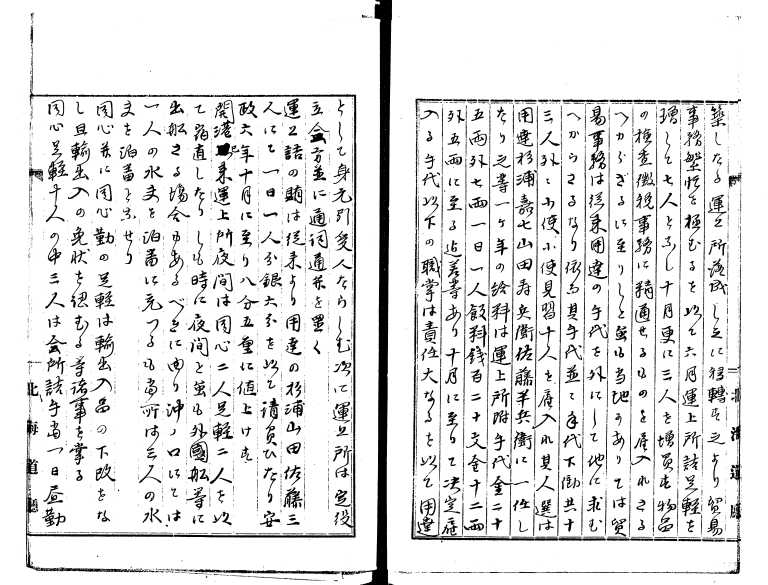 築しなる運上所落成し之に移轉す之より貿易
事務繁忙を極むるを以て六月運上所詰足軽を
増して七人とふし十月更に三人を増員す物品
の検査徴税事務に精通せるものを雇入れさる
へからざるに至りしと雖も当地方ありては貿
易事務は従来用達の手代を外にして他に求む
へからさるなり依て其手代並て手代下働共十
三人外に小使小使見習十人を雇入れ其人選は
用達杉浦嘉七山田寿兵衛佐藤半兵衛に一任し
たり之等一ヶ年の給料は運上所附手代金二十
五両外七両一日一人飯料銭百二十文金十二両
外五両に至る迄差等あり十月に至りて決定雇
入る手代以下の職掌は責任大なるを以て用達
として身元引受人たらしむ次に運上所は定役
立会方並に通詞通弁を置く
運上詰の賄は従来より用達の杉浦山田佐藤三
人にて一日一人分銀六分を以て請負ひたり安
政六年十月に至り八分五厘に値上けす
開港以来運上所夜間は同心二人足軽二人を以
て宿直したりしも時に夜間と雖も外國船等に
出船さる場合もあるべきに由り沖ノ口にては
一人の水夫を泊番に充つるも当所は三人の水
夫を泊番となせり
同心並に同心勤の足軽は輸出入品の下改をな
し且輸出入の免状を認むる等諸事を掌る
同心足軽十人の中三人は会所詰手当一日昼勤
北海道廳
北海道廳